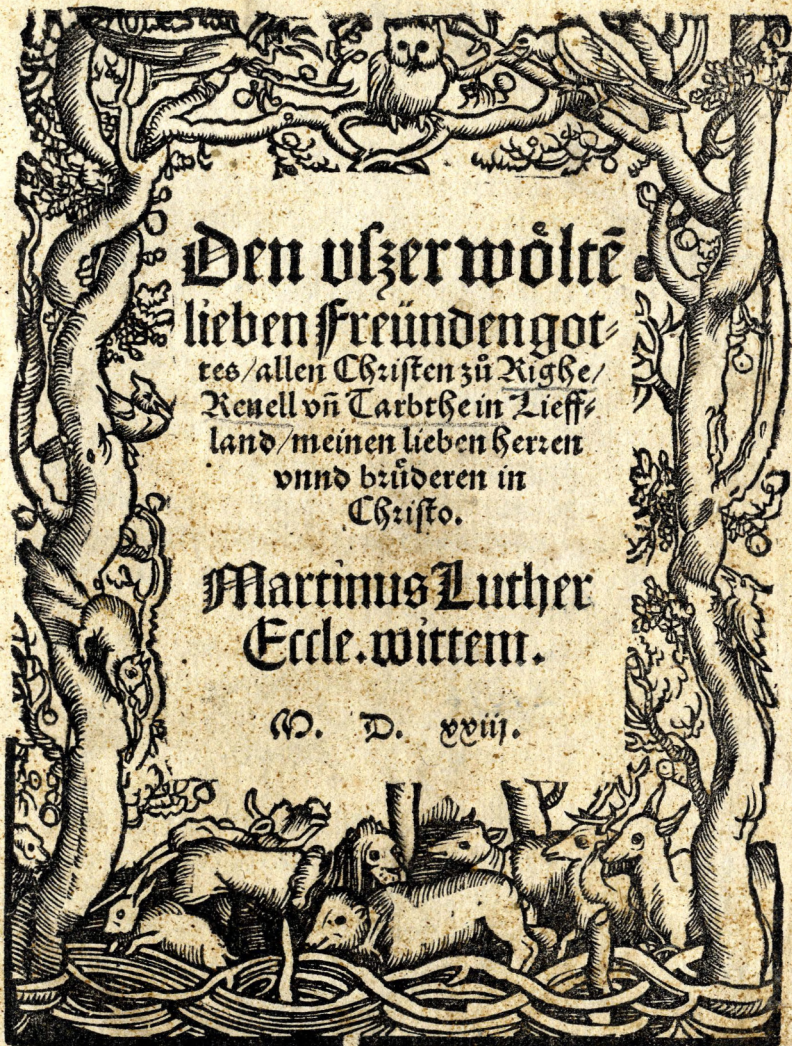 Den vſzerwoͤltē
lieben Freünden got⸗
tes/allen Chriſten zů Righe/
Reuell vn̄ Tarbthe in Lieff⸗
land/meinen lieben herren
vnnd bruͤderen in
Chriſto.
Martinus Luther
Eccle.wittem.
M. D. xxiij.